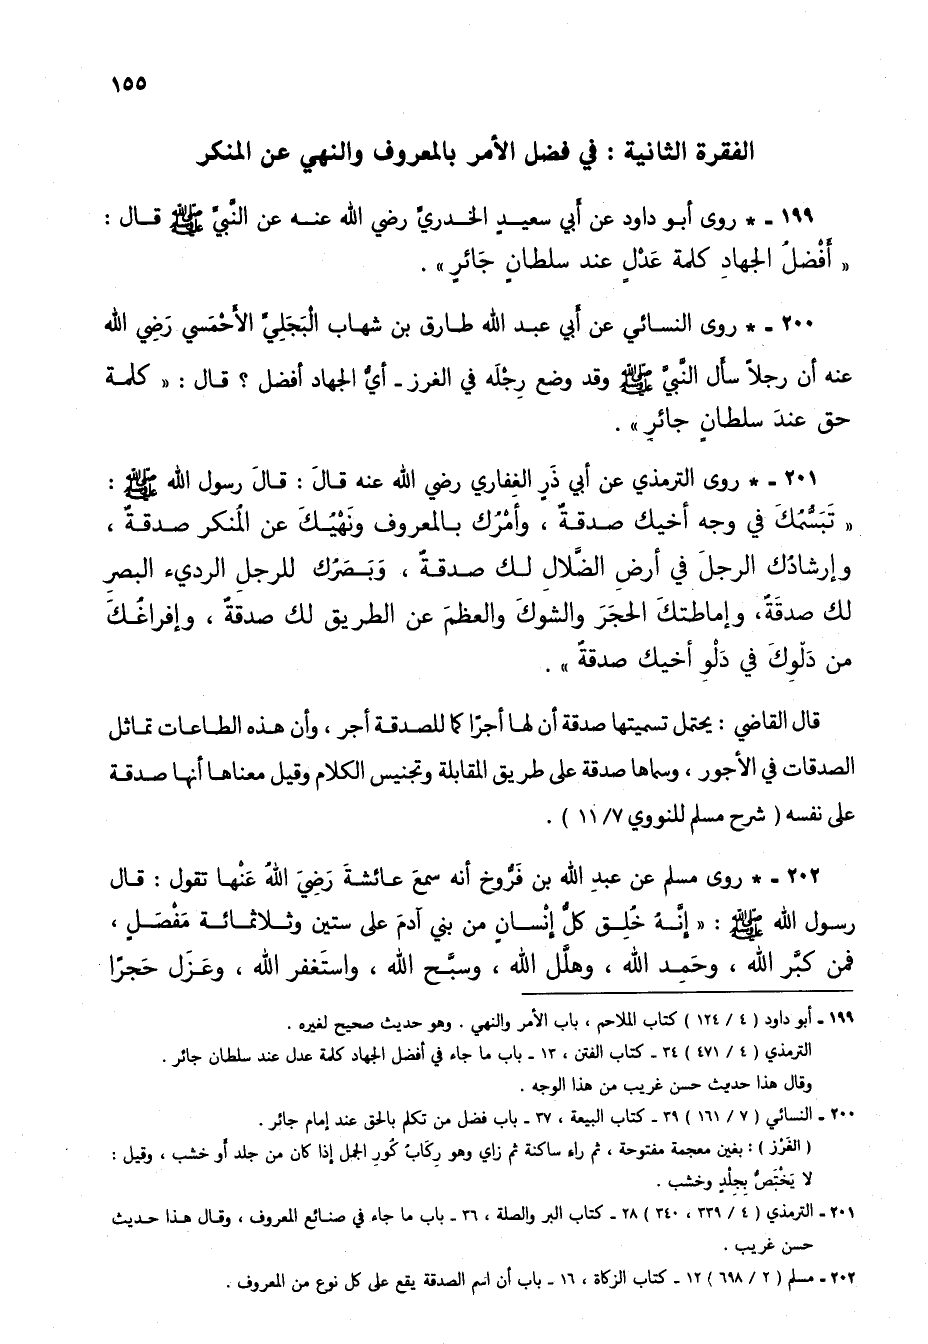 ١٥٥
الفقرة الثانية : في فضل الأمر بالمعروف والنهي عن المنكر
١٩٩ ـ * روى أبو داود عن أبي سعيدٍ الخدريِّ رضي الله عنه عن النَّبيِّ ﷺ قال :
« أَفْضلُ الجهادِ كلمة عَدْلٍ عند سلطانٍ جَائرٍ » .
٢٠٠ ـ * روى النسائي عن أَبي عبد الله طارق بن شهاب الْبَجَلِيِّ الأَحْمَسي رَضِي الله
عنه أن رجلاً سأَل النَّبيَّ ﷺ وقد وضع رِجْلَه في الغرز ـ أيُّ الجهاد أفضل ؟ قال : « كلمة
حق عندَ سلطانٍ جائرٍ » .
٢٠١ ـ * روى الترمذي عن أبي ذَرٍ الغِفاري رضي الله عنه قالَ : قالَ رسول الله ﷺ :
« تَبَسُّمُكَ في وجه أخيك صدقةٌ ، وأمْرُك بالمعروف ونَهْيُكَ عن المُنكر صدقةٌ ،
وإرشادُك الرجلَ في أرضِ الضَّلال لك صدقةٌ ، وَبَصَرُك للرجلِ الرديء البصرِ
لك صدقَةٌ، وإماطتكَ الحجَرَ والشوكَ والعظمَ عن الطريق لك صدقةٌ ، وإفراغُكَ
من دَلْوِكَ في دَلْوِ أخيك صدقةٌ » .
قال القاضي : يحتمل تسميتها صدقة أن لها أجرًا كما للصدقة أجر ، وأن هذه الطاعات تماثل
الصدقات في الأجور ، وسماها صدقة على طريق المقابلة وتجنيس الكلام وقيل معناها أنها صدقة
على نفسه ( شرح مسلم للنووي ٧/ ١١ ) .
٢٠٢ ـ * روى مسلم عن عبدِ الله بن فَرُّوخ أنه سمعَ عائشةَ رَضِيَ اللهُ عَنْها تقول : قال
رسول الله ﷺ : « إنَّهُ خُلِق كلُّ إنْسانٍ من بني آدمَ على ستين وثلاثمائة مَفْصَلٍ ،
فمن كبَّر الله ، وحَمِد الله ، وهلَّل الله ، وسبَّح الله ، واستَغفر الله ، وعَزَل حَجرًا
١٩٩ ـ أبو داود ( ٤ / ١٢٤ ) كتاب الملاحم ، باب الأمر والنهي . وهو حديث صحيح لغيره .
الترمذي ( ٤ / ٤٧١ ) ٣٤ ـ كتاب الفتن ، ١٣ ـ باب ما جاء في أفضل الجهاد كلمة عدل عند سلطان جائر .
وقال هذا حديث حسن غريب من هذا الوجه .
٢٠٠ ـ النسائي ( ٧ / ١٦١ ) ٣٩ ـ كتاب البيعة ، ٣٧ ـ باب فضل من تكلم بالحق عند إمام جائر .
( الغَرْز ) : بغين معجمة مفتوحة ، ثم راء ساكنة ثم زاي وهو رِكَابُ كُورِ الجمل إذا كان من جلد أو خشب ، وقيل :
لا يَخْتَصُّ بِجلْدٍ وخشب .
٢٠١ ـ الترمذي ( ٤ / ٣٣٩ ، ٣٤٠ ) ٢٨ ـ كتاب البر والصلة ، ٣٦ ـ باب ما جاء في صنائع المعروف ، وقال هذا حديث
حسن غريب .
٢٠٢ ـ مسلم ( ٢ / ٦٩٨ ) ١٢ ـ كتاب الزكاة ، ١٦ ـ باب أن اسم الصدقة يقع على كل نوع من المعروف .